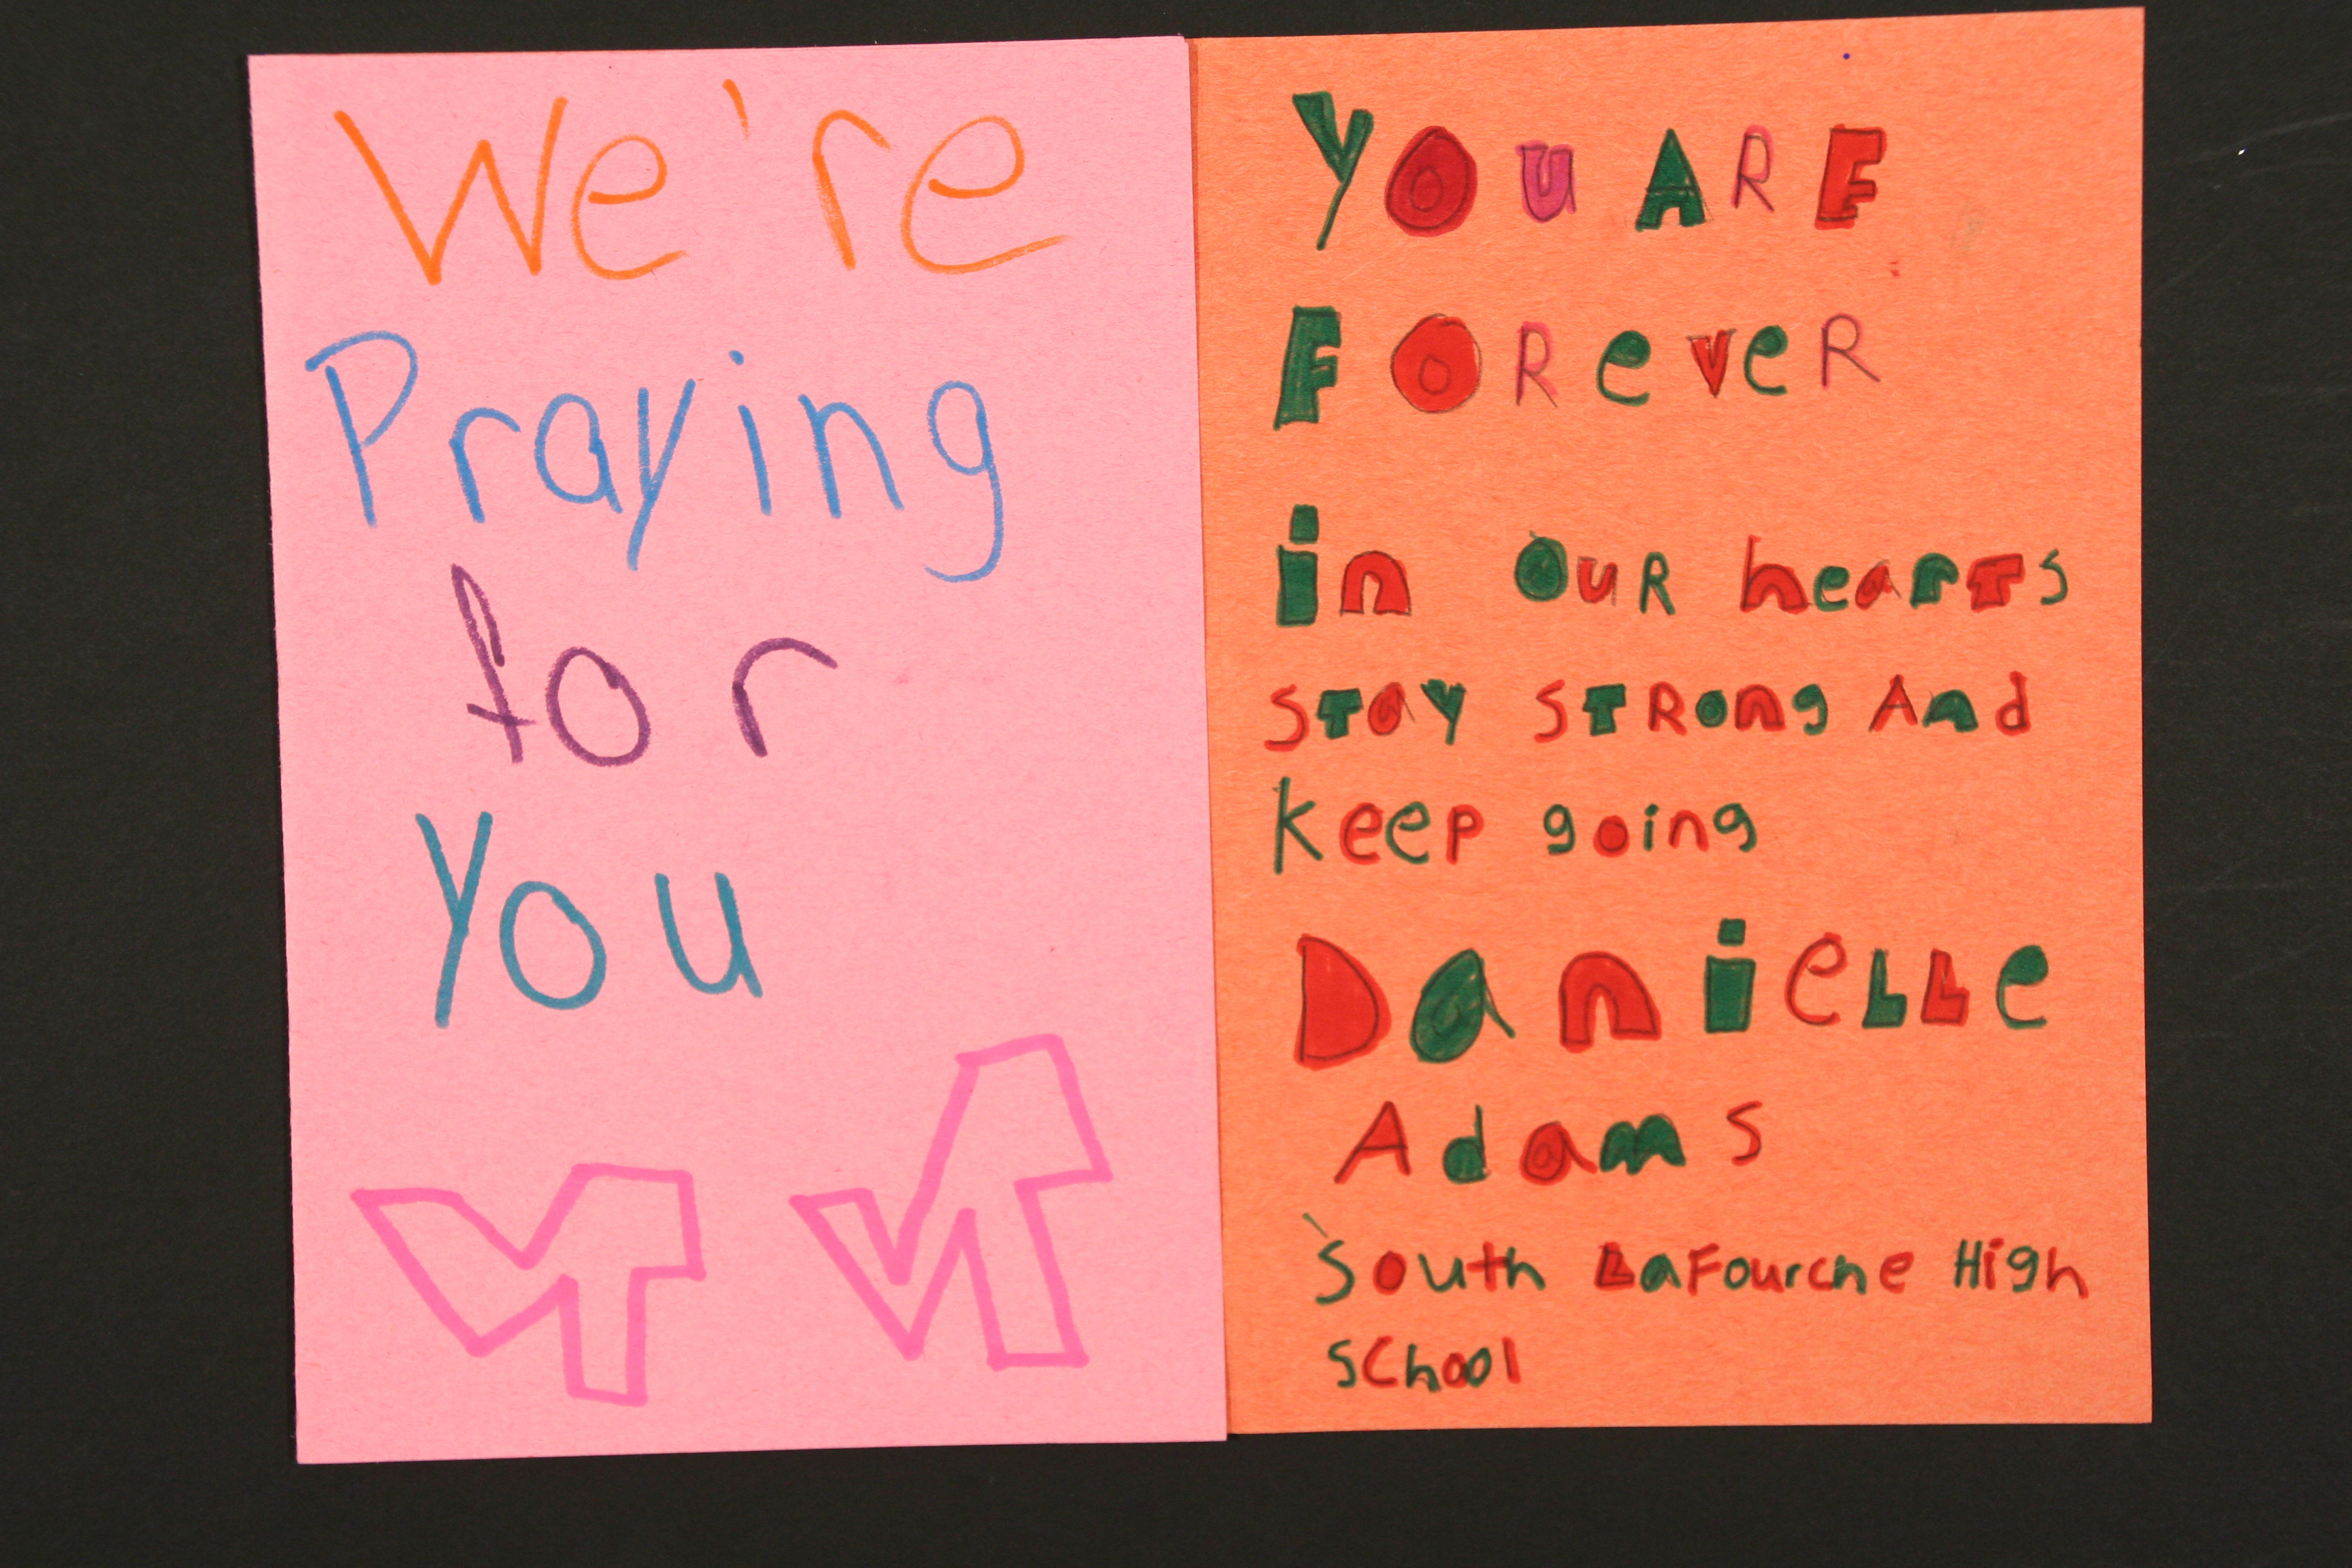 We're
Praying
for
You
VT VT
YOU ARE
FOReveR
in OuR hearTs
STAY STRong And
keep going
DanieLLe
Adams
South LaFourche High
SChool